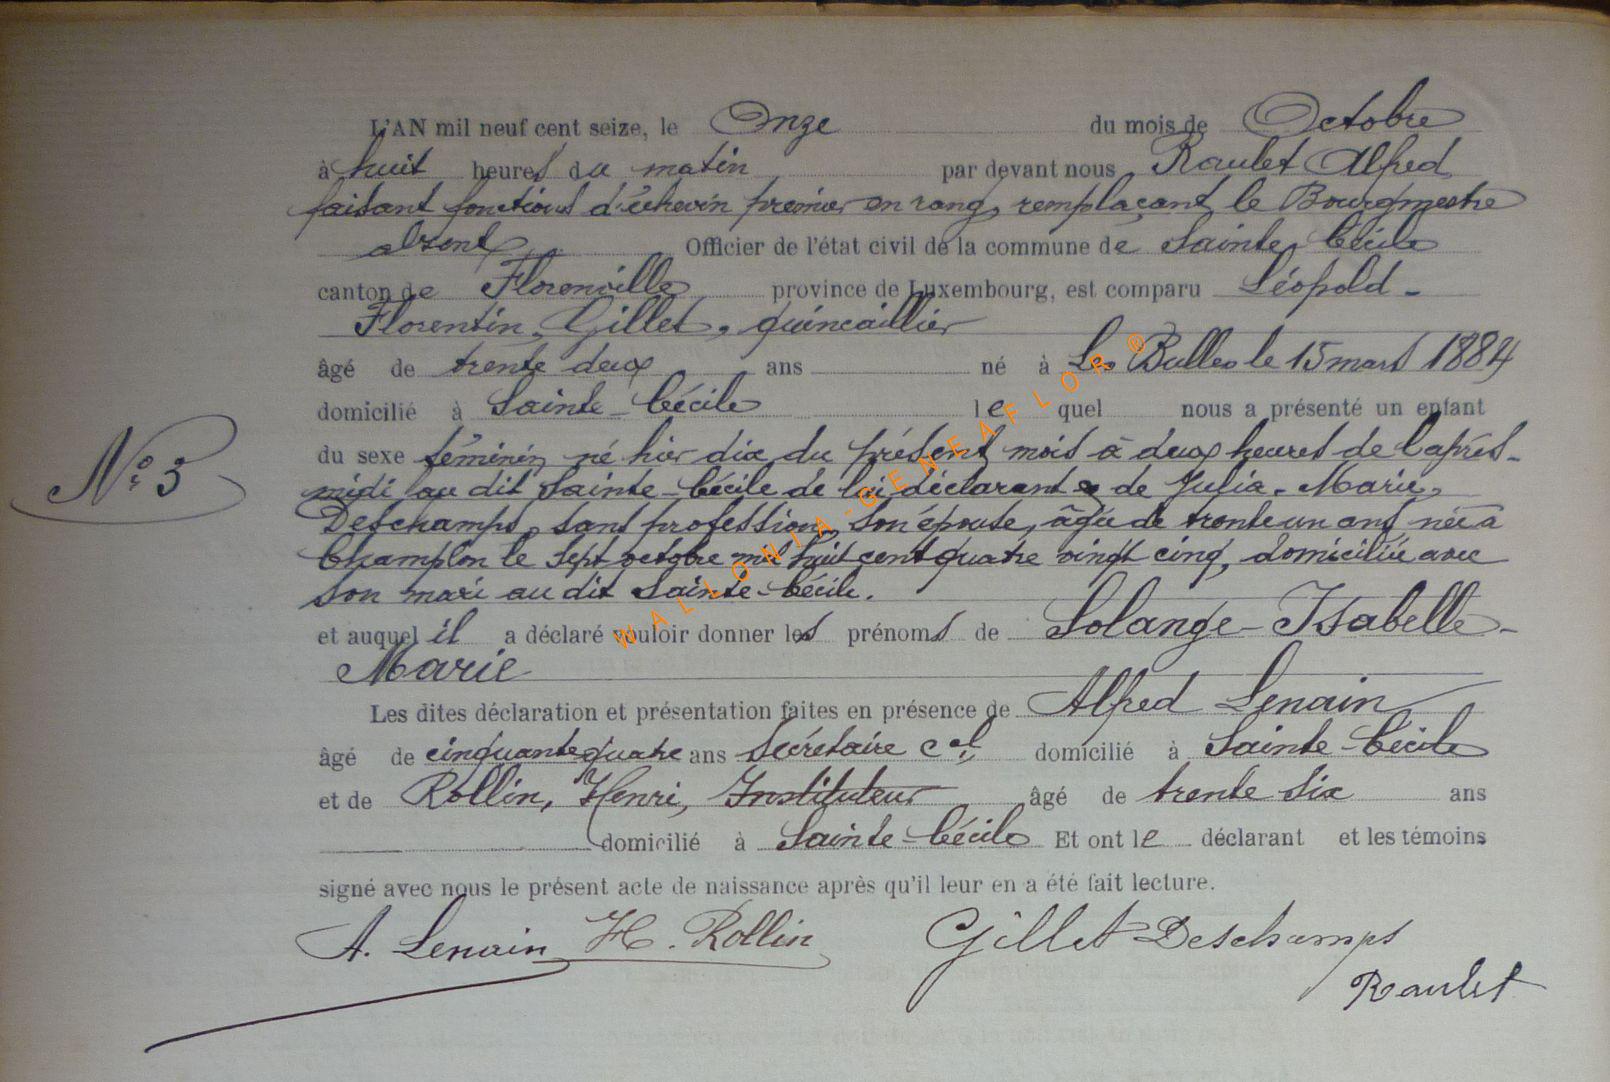 L'AN mil neuf cent seize, le Onze du mois de Octobre
à huit heures du matin par devant nous Raulet Alfred
faisant fonctions d'échevin premier en rang, remplaçant le Bourgmestre
absent, Officier de l'état civil de la commune de Sainte-Cécile
canton de Florenville province de Luxembourg, est comparu Léopold-
Florentin, Gillet, quincaillier
âgé de trente deux ans né à Les Bulles le 15 mars 1884
domicilié à Sainte-Cécile lequel nous a présenté un enfant
du sexe féminin né hier dix du présent mois à deux heures de l'après-
N° 3
midi au dit Sainte-Cécile de lui déclarant & de Julia-Marie,
Deschamps, sans profession, son épouse, âgée de trente un ans née à
Champlon le sept octobre mil huit cent quatre vingt cinq, domiciliée avec
son mari au dit Sainte-Cécile.
et auquel il a déclaré vouloir donner les prénoms de Solange-Isabelle-
Marie
Les dites déclaration et présentation faites en présence de Alfred Lenain
âgé de cinquante quatre ans Secrétaire cal, domicilié à Sainte-Cécile
et de Rollin, Henri, Instituteur âgé de trente six ans
domicilié à Sainte-Cécile Et ont le déclarant et les témoins
signé avec nous le présent acte de naissance après qu'il leur en a été fait lecture.
A. Lenain H. Rollin Gillet-Deschamps
Raulet
WALLONIA-GENEAFLOR®